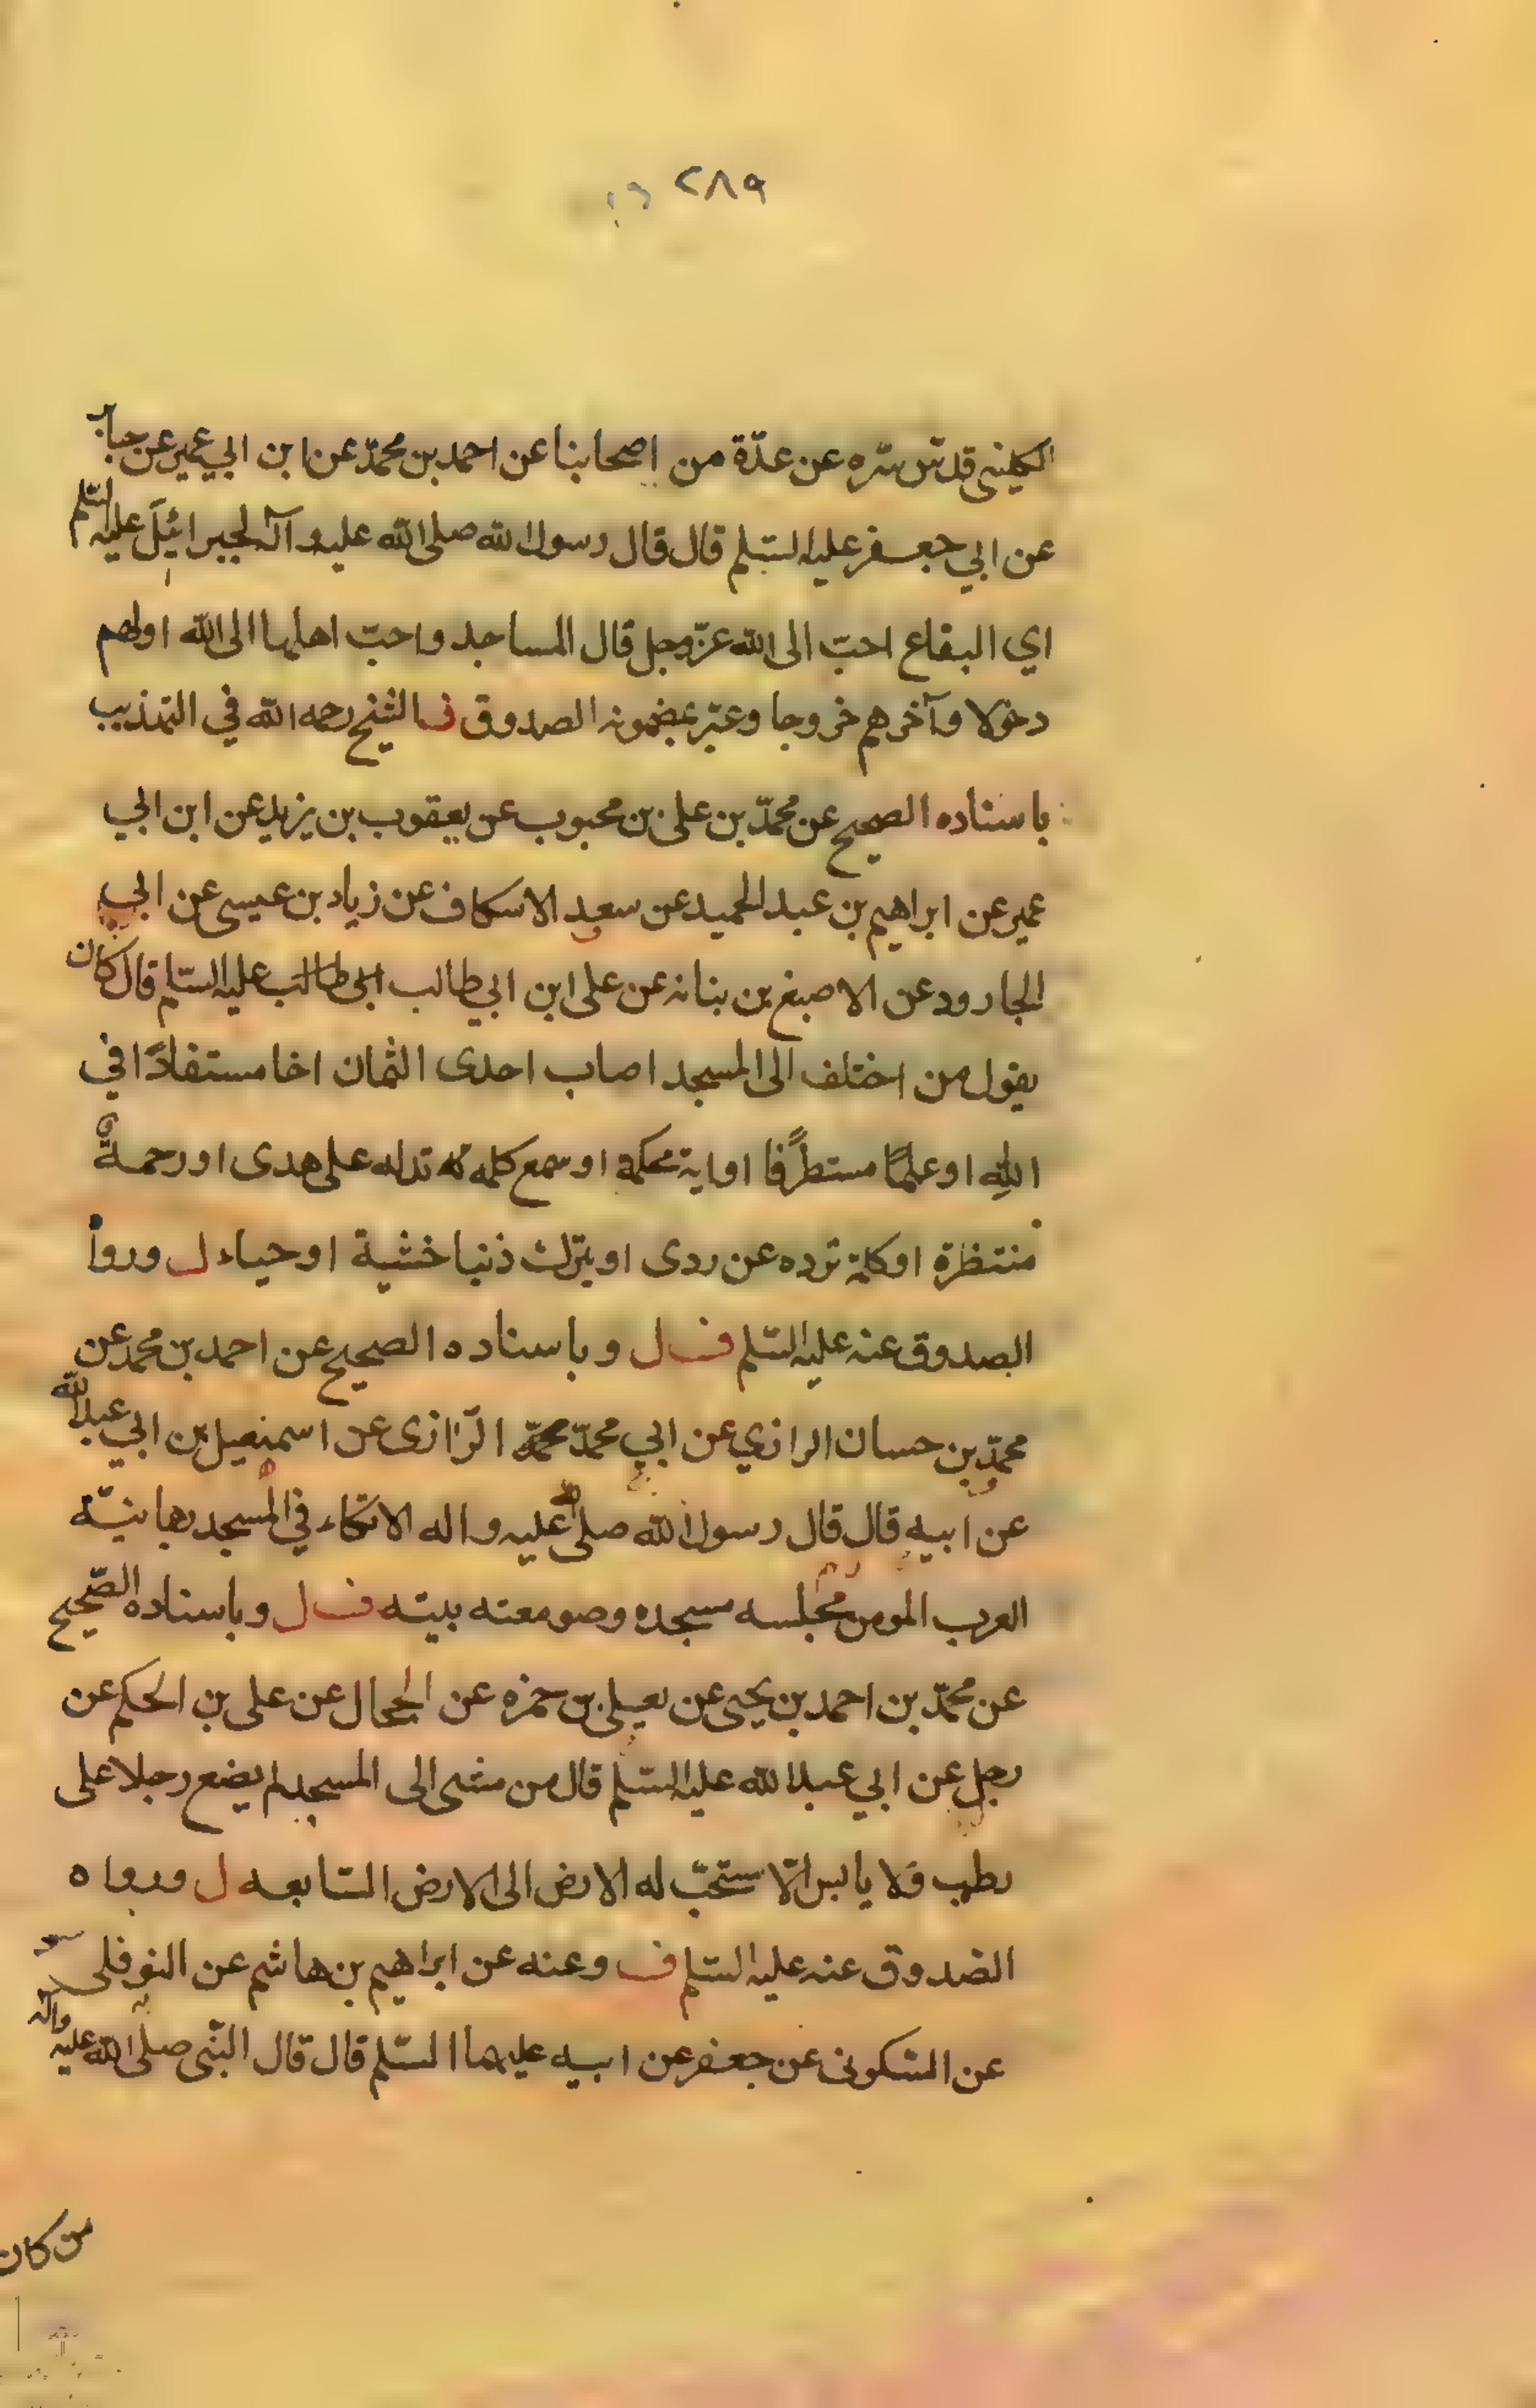 ٢٨٩
الكليني قدس سره عن عدّة من اصحابنا عن احمد بن محمّد عن ابن ابي عمير عن جابر
عن ابي جعفر عليه السّلم قال قال رسول الله صلى الله عليه وآله لجبرائيل عليه السّلم
اي البقاع احبّ الى الله عزّ وجل قال المساجد واحبّ اهلها الى الله اولهم
دخولا وآخرهم خروجا وعبّر بمضمونه الصدوق ف الشيخ رحمه الله في التهذيب
باسناده الصحيح عن محمّد بن على بن محبوب عن يعقوب بن يزيد عن ابن ابي
عمير عن ابراهيم بن عبد الحميد عن سعد الاسكاف عن زياد بن عيسى عن ابي
الجارود عن الاصبغ بن بنانه عن على ابن ابي طالب ابي طالب عليه السّلم قال كان
يقول من اختلف الى المسجد اصاب احدى الثمان اخا مستفادًا في
الله او علمًا مستطرًفا او اية محكمة او سمع كلمه تدله على هدى او رحمةً
منتظرة او كلمة ترده عن ردى او يترك ذنبا خشية او حياء ل وروا
الصدوق عنه عليه السّلم ف ل وباسناده الصحيح عن احمد بن محمد عن
محمّد بن حسان الرازي عن ابي محمّد محمّد الرّازى عن اسمعيل بن ابي عبد الله
عن ابيه قال قال رسول الله صلى الله عليه واله الاتكاء في المسجد رهبانيّة
العرب المومن مجلسه مسجده وصومعته بيته ف ل وباسناده الصّحيح
عن محمّد بن احمد بن يحيى عن يعلى بن حمزه عن الحجال عن على بن الحكم عن
رجل عن ابي عبد الله عليه السّلم قال من مشى الى المسجد لم يضع رجلا على
رطب ولا يابس الّا سبّحت له الارض الى الارض السّابعه ل ورواه
الصدوق عنه عليه السّلم ف وعنه عن ابراهيم بن هاشم عن النوفلى
عن السّكونى عن جعفر عن ابيه عليهما السّلم قال قال النّبى صلّى الله عليه واله
من كان